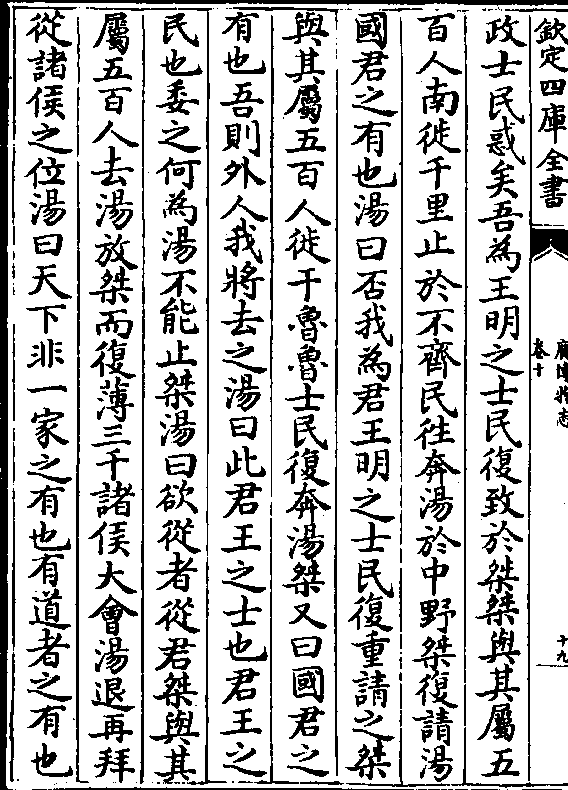 欽定四庫全書
廣博物志
卷十
十九
政士民惑矣吾為王明之士民復致於桀桀與其屬五
百人南徙千里止於不齊民徃奔湯於中野桀復請湯
國君之有也湯曰否我為君王明之士民復重請之桀
與其屬五百人徙于魯魯士民復奔湯桀又曰國君之
有也吾則外人我將去之湯曰此君王之士也君王之
民也委之何為湯不能止桀湯曰欲從者從君桀與其
屬五百人去湯放桀而復薄三千諸侯大會湯退再拜
從諸侯之位湯曰天下非一家之有也有道者之有也